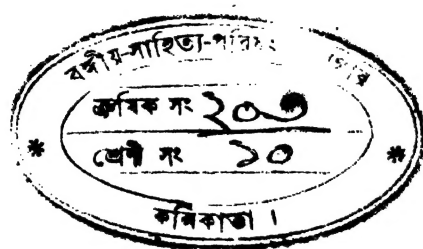 বঙ্গীয়-সাহিত্য-পরিষৎ
ক্রমিক সং ২০৩
শ্রেণী সং ১০
কলিকাতা ।